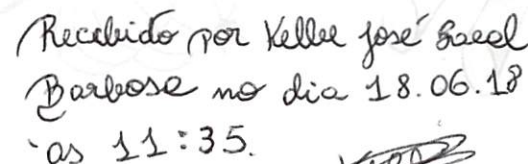 Recebido por Kellee José
Barbosa no dia 18.06.18
às 11:35.